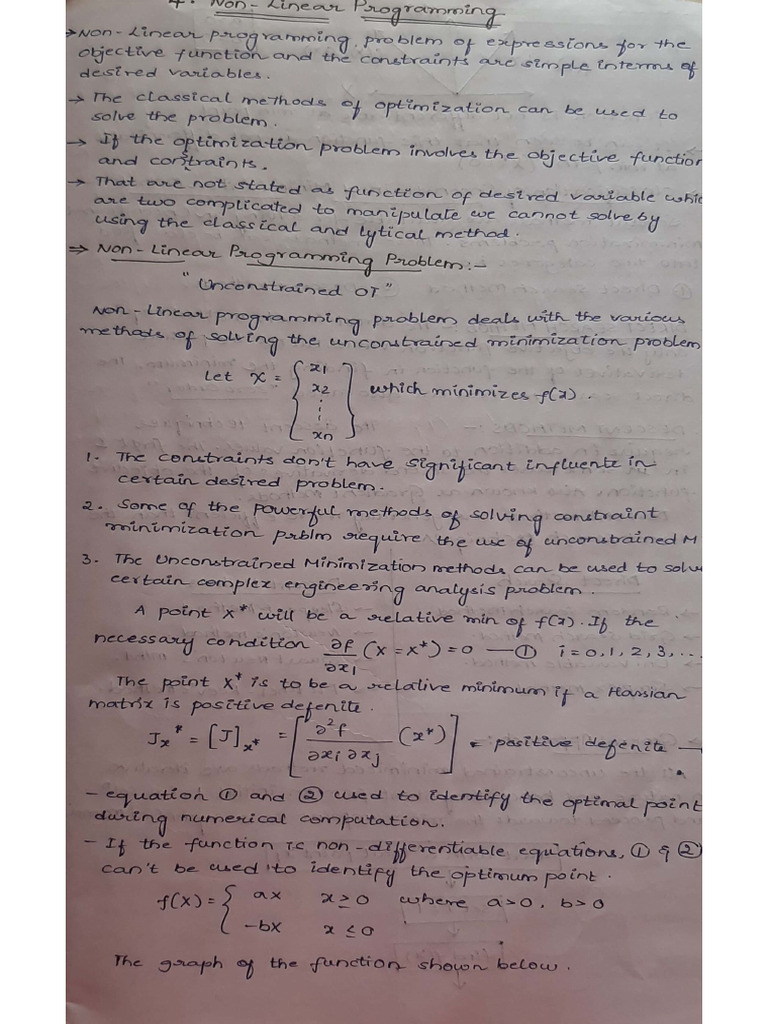 4. Non-Linear Programming
→ Non-Linear programming problem of expressions for the
objective function and the constraints are simple interms of
desired variables.
→ The classical methods of optimization can be used to
solve the problem.
→ If the optimization problem involves the objective function
and constraints.
→ That are not stated as function of desired variable whic
are two complicated to manipulate we cannot solve by
using the classical and lytical method.
→ Non-Linear Programming Problem:-
"Unconstrained OT"
Non-Linear programming problem deals with the various
methods of solving the unconstrained minimization problem
Let X = { x1 x2 ⋮ xn } which minimizes f(x).
1. The constraints don't have significant influente in
certain desired problem.
2. Some of the powerful methods of solving constraint
minimization prblm require the use of unconstrained M
3. The Unconstrained Minimization methods can be used to solve
certain complex engineering analysis problem.
A point X* will be a relative min of f(x). If the
necessary condition ∂f/∂x1 (X = X*) = 0 — ① i = 0, 1, 2, 3, ...
The point X* is to be a relative minimum if a Hassian
matrix is positive defenite.
Jx* = [J]x* = [∂²f/∂xi ∂xj (x*)] = positive defenite —
- equation ① and ② used to identify the optimal point
during numerical computation.
- If the function is non-differentiable equations, ① & ②
can't be used to identify the optimum point.
f(X) = { ax x ≥ 0 where a>0, b>0
-bx x ≤ 0
The graph of the function shown below.